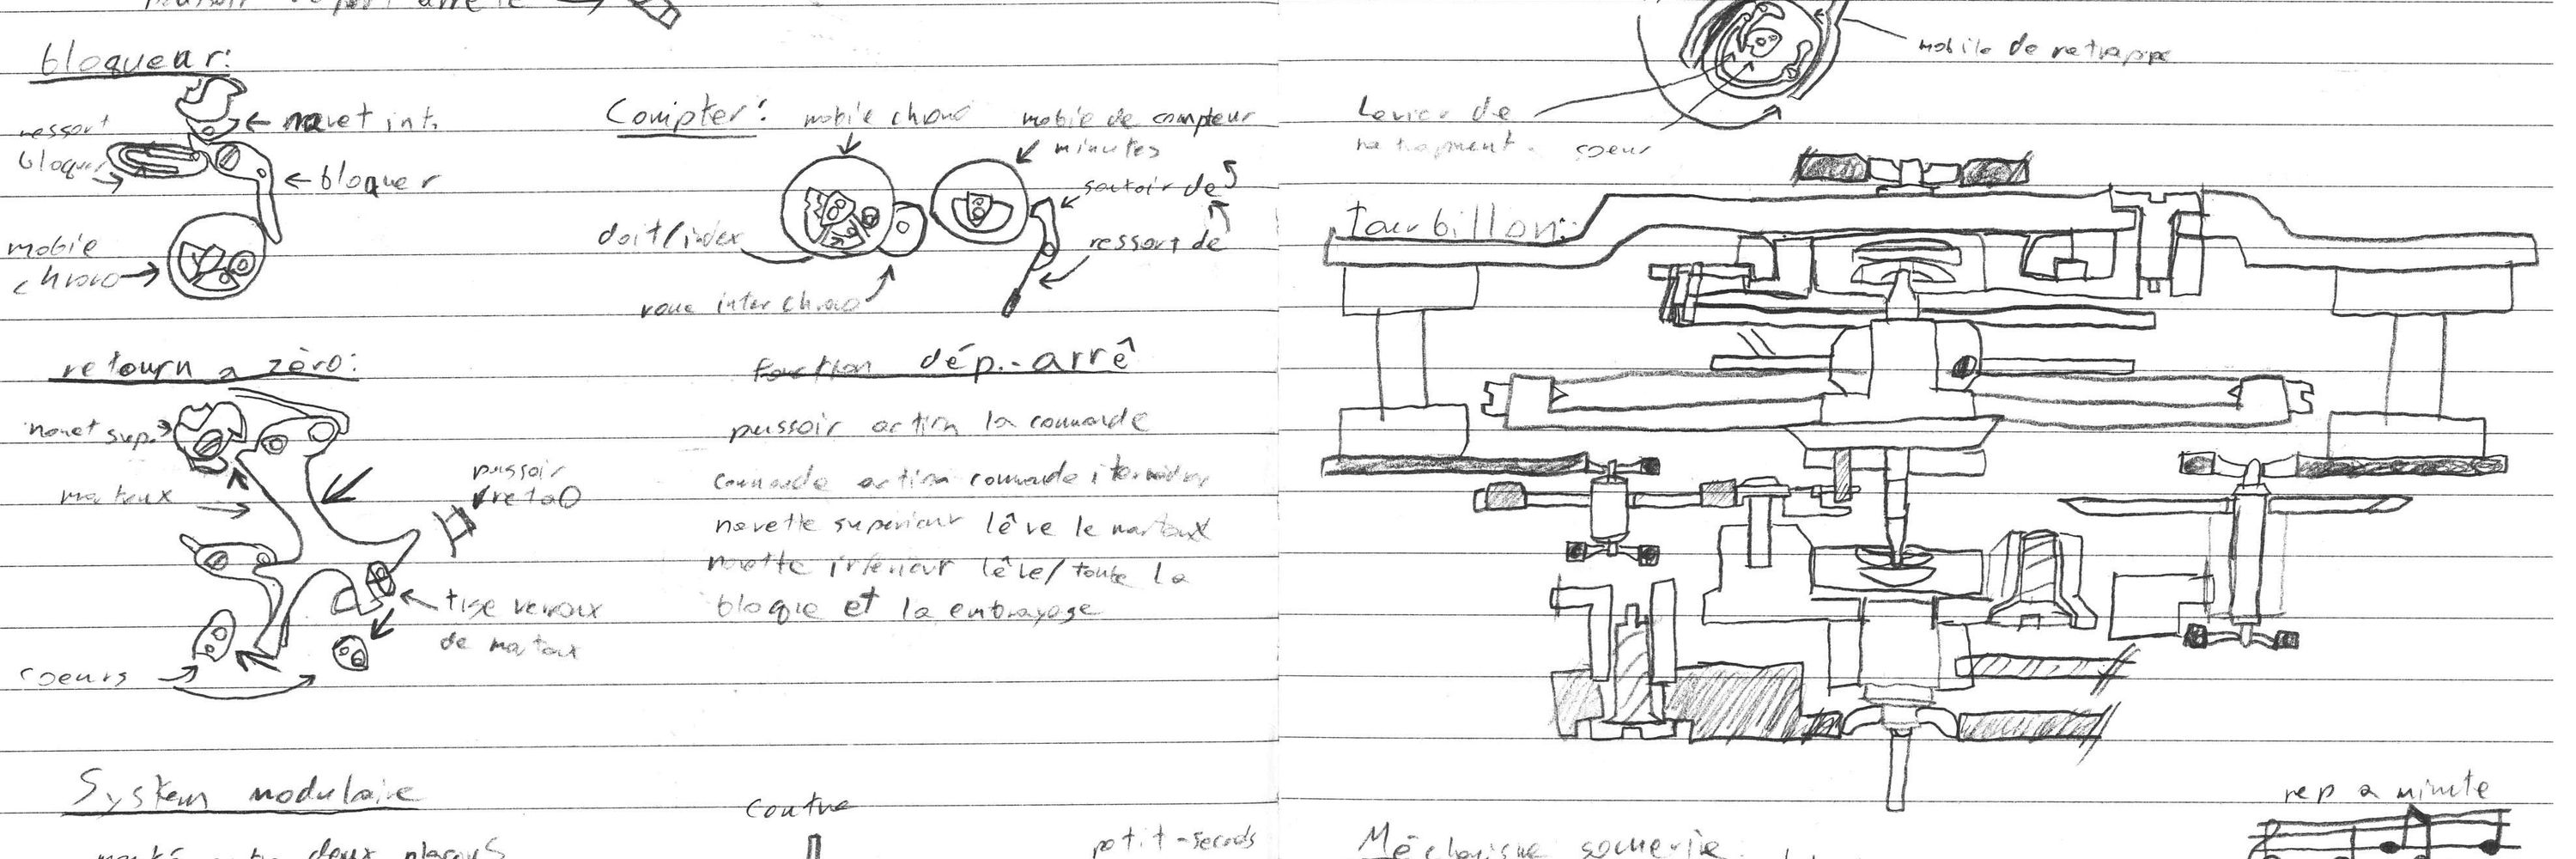 bloqueur:
← navet int.
ressort
bloquer
← bloquer
mobile
chrono →
Compter:
mobile chrono
mobile de compteur
minutes
sautoir de
ressort de
doit/index
roue inter chrono
retourn a zèro:
navet sup.
marteux
pussoir
retaO
tige veroux
de martoux
coeurs
fonction dép.-arrê
pussoir action la commande
commande action commande
navette superieur lêve le martoux
navette inférieur lêve/toute la
bloque et la embrayage
System modulaire
deux
Contre
petit-seconds
mobile de retrappe
Levier de
coeur
tourbillon:
Méchanisme sonnerie
rep a minute